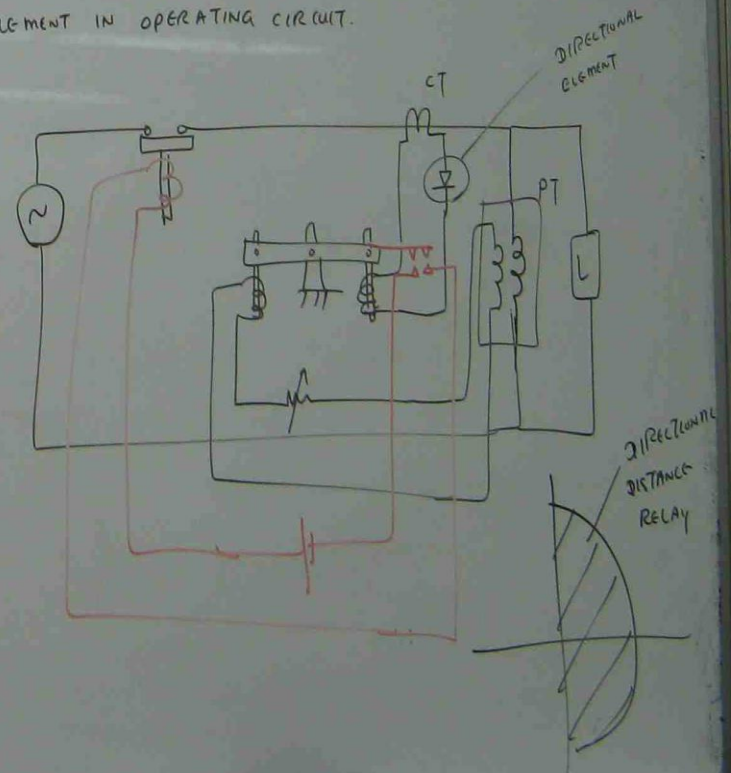 LEMENT IN OPERATING CIRCUIT.
DIRECTIONAL
ELEMENT
CT
PT
~
L
DIRECTIONAL
DISTANCE
RELAY